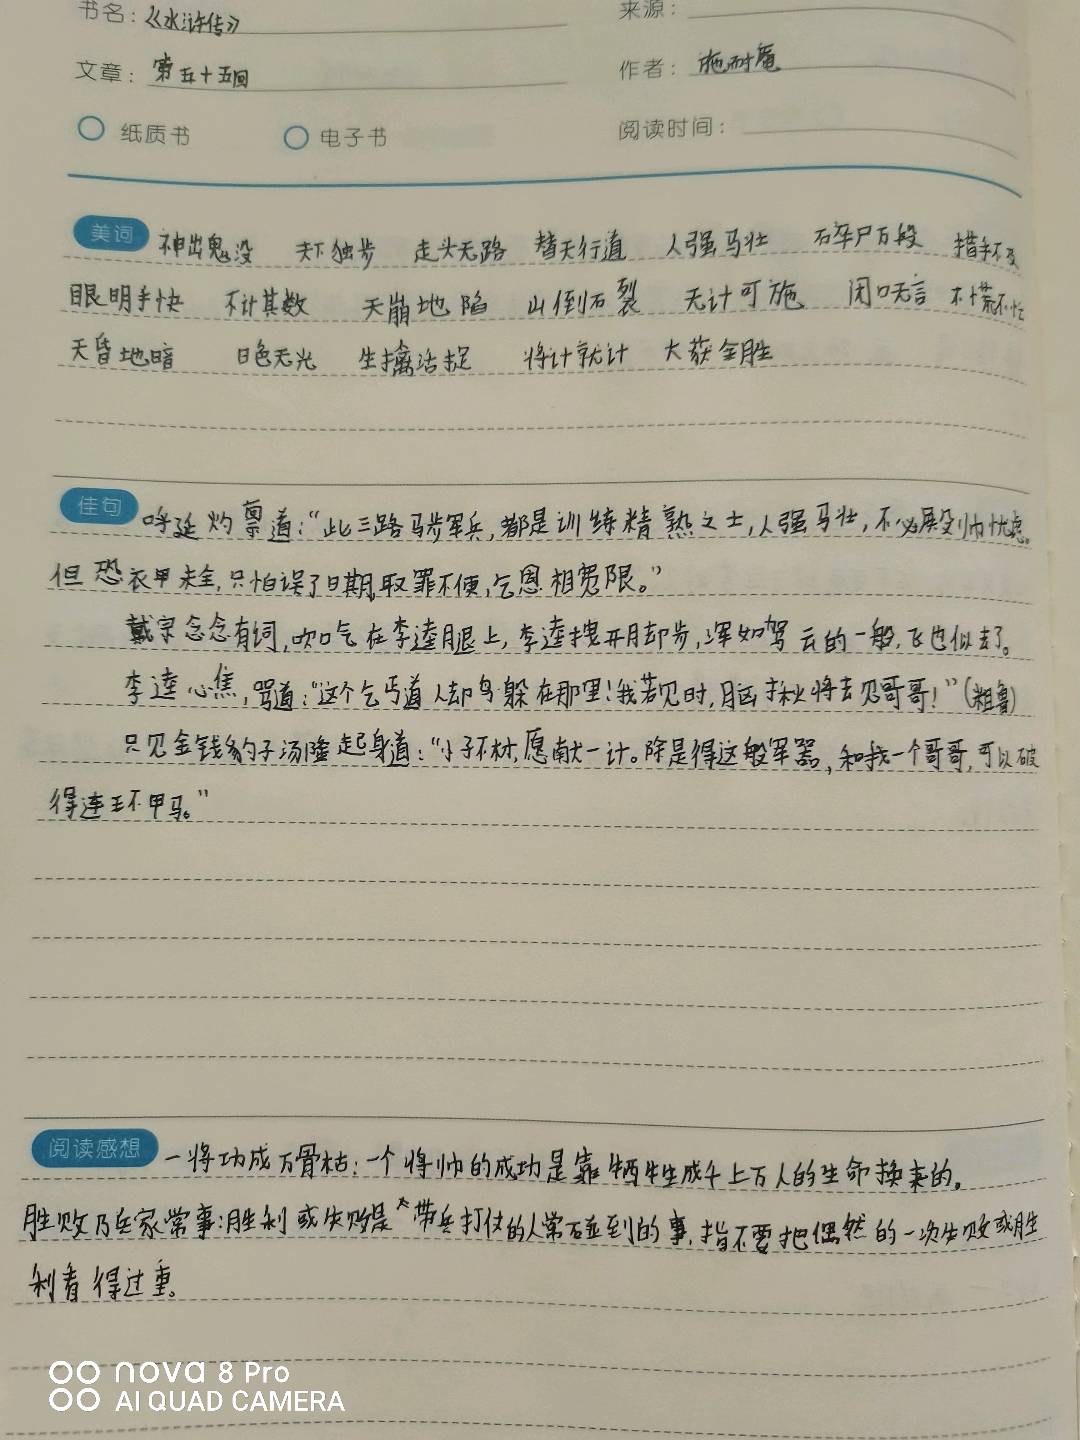 书名：《水浒传》 来源：
文章：第五十五回 作者：施耐庵
纸质书 电子书 阅读时间：
美词 神出鬼没 天下独步 走头无路 替天行道 人强马壮 碎尸万段 措手不及
眼明手快 不计其数 天崩地陷 山倒石裂 无计可施 闭口无言 不慌不忙
天昏地暗 日色无光 生擒活捉 将计就计 大获全胜
佳句 呼延灼禀道：“此三路马步军兵，都是训练精熟之士，人强马壮，不必殿帅忧虑。
但恐衣甲未全，只怕误了日期，取罪不便，乞恩相宽限。”
戴宗念念有词，吹口气在李逵腿上，李逵拽开脚步，浑如驾云的一般，飞也似去了。
李逵心焦，骂道：“这个乞丐道人却鸟躲在那里！我若见时，脑揪将去见哥哥！”（粗鲁）
只见金钱豹子汤隆起身道：“小子不材，愿献一计。除是得这般军器，和我一个哥哥，可以破
得连环甲马。”
阅读感想 一将功成万骨枯：一个将帅的成功是靠牺牲成千上万人的生命换来的。
胜败乃兵家常事：胜利或失败是带兵打仗的人常碰到的事，指不要把偶然的一次失败或胜
利看得过重。
nova 8 Pro
AI QUAD CAMERA